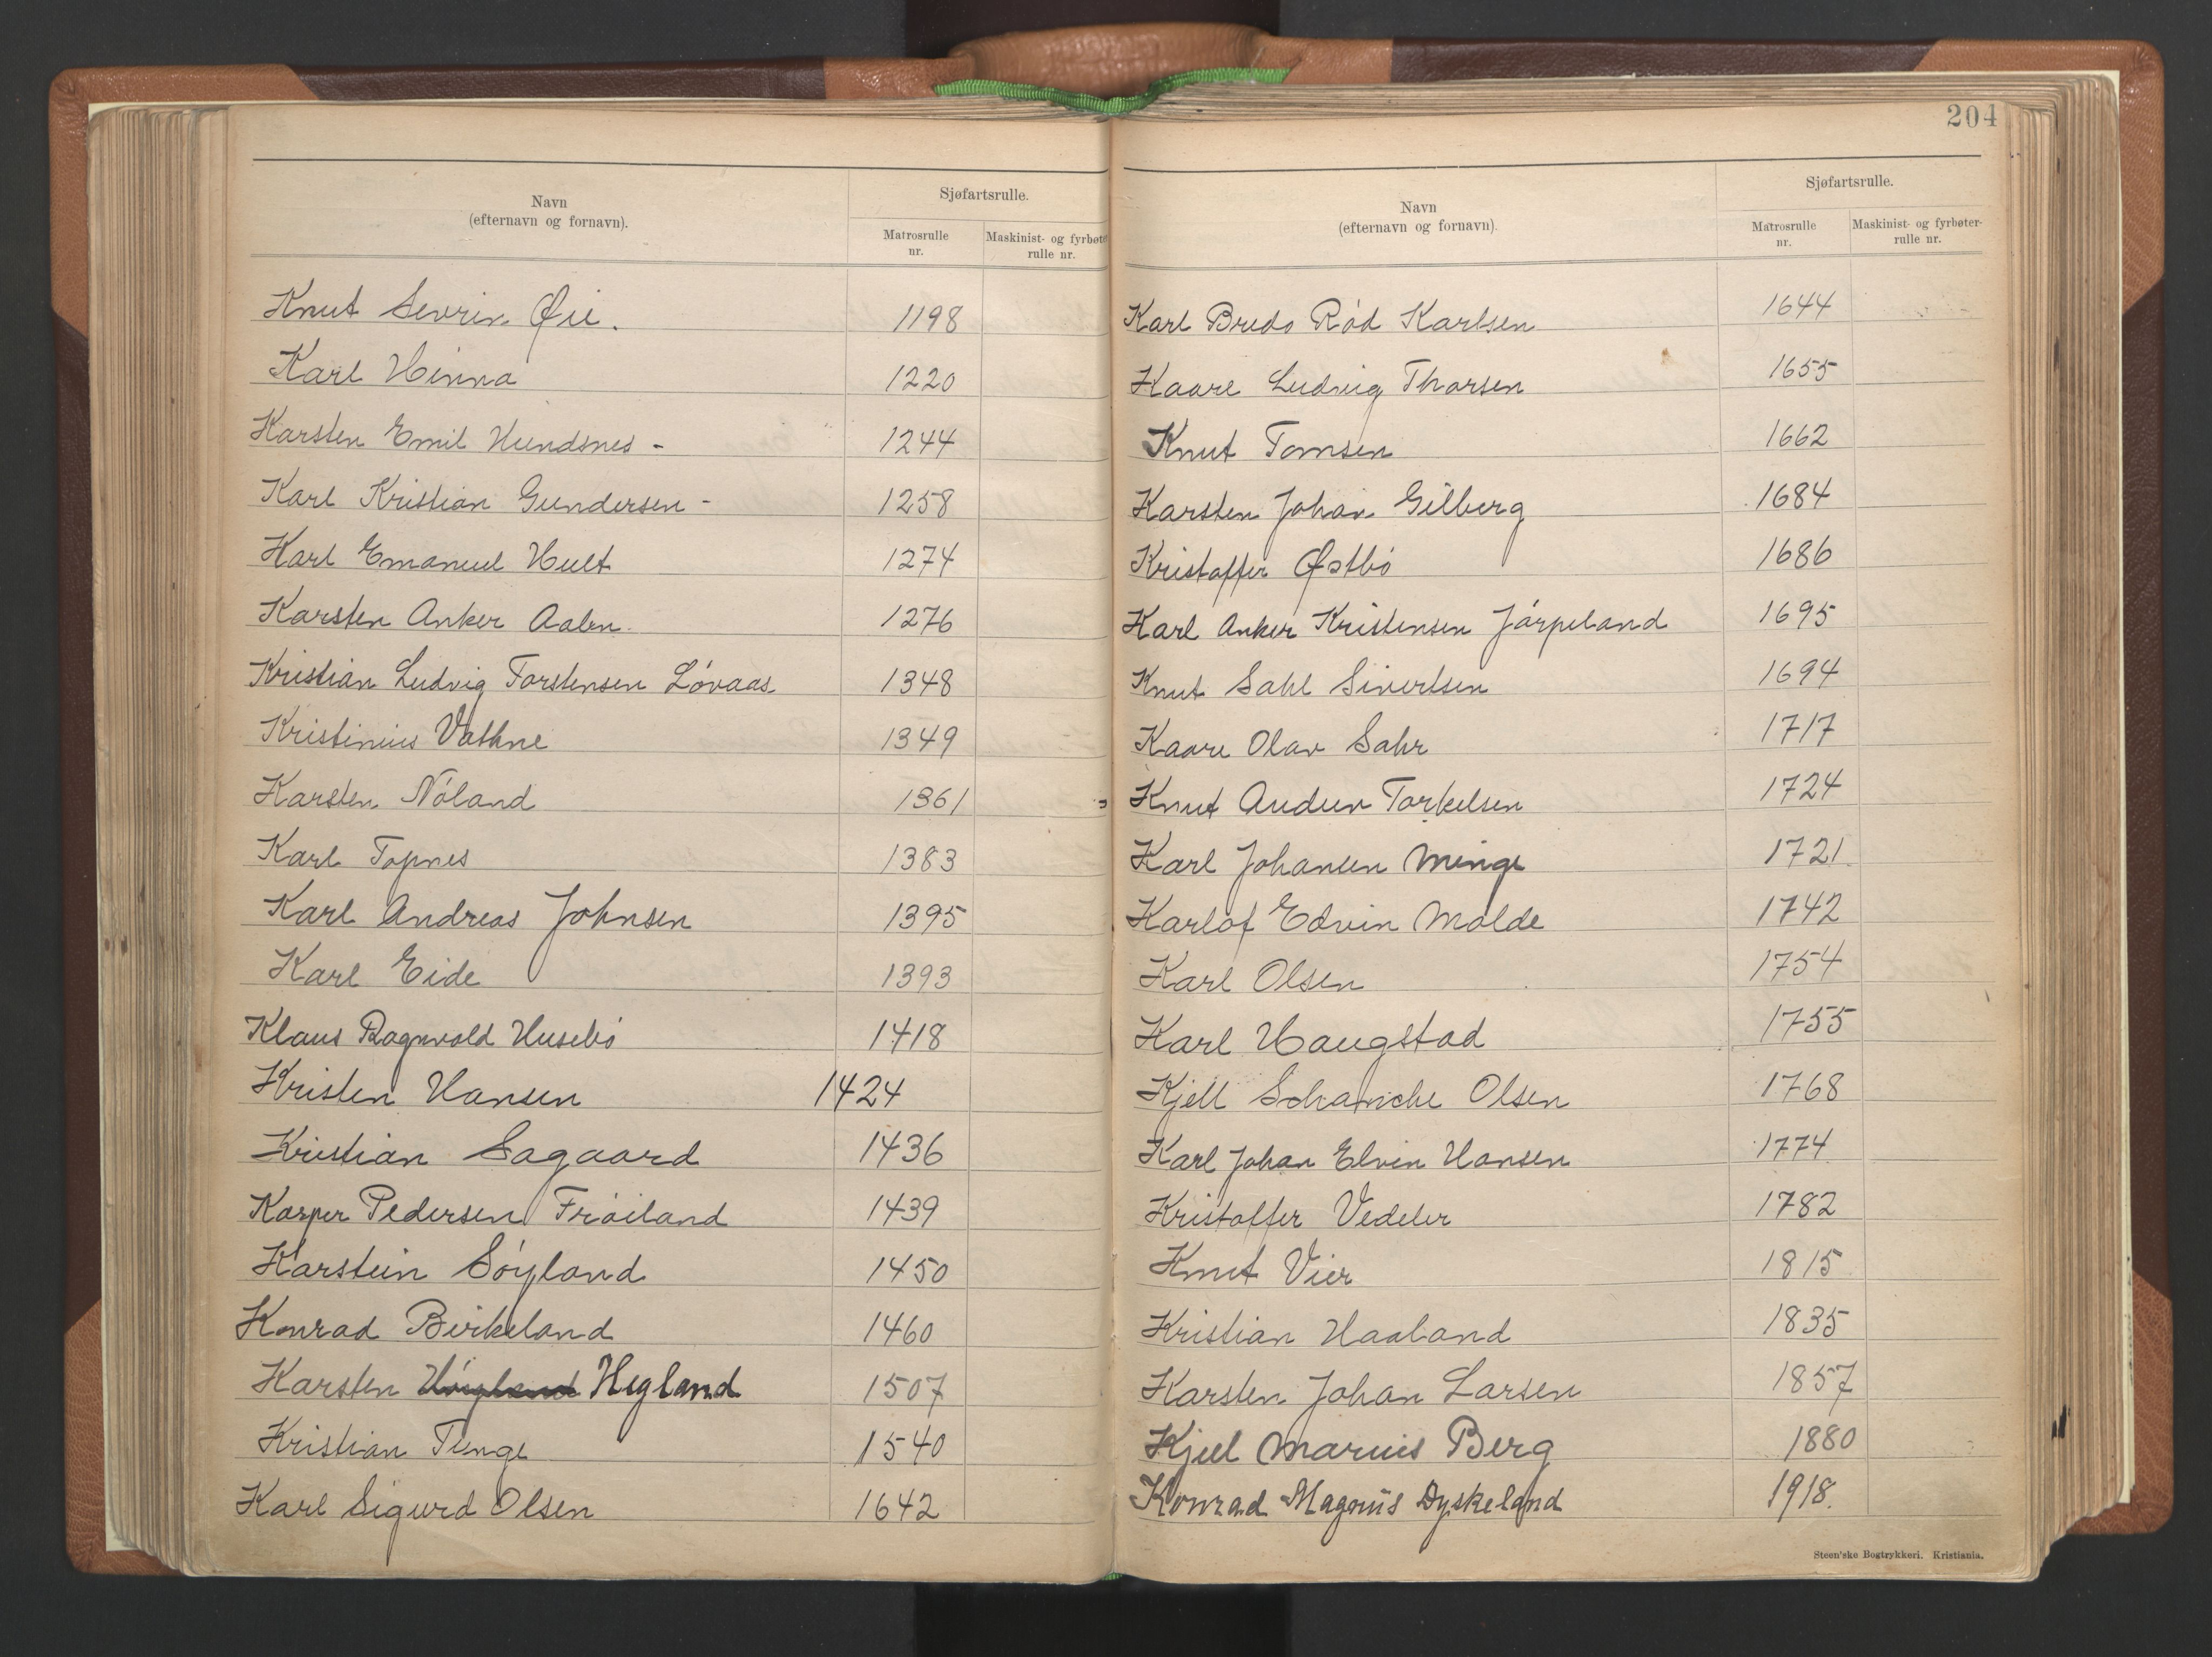 204
Navn
(efternavn og fornavn).
Sjøfartsrulle.
Matrosrulle nr.
Maskinist- og fyrbøter-rulle nr.
Knut Sevrin Øie. 1198
Karl Hinna 1220
Karsten Emil Hundsnes - 1244
Karl Kristian Gundersen - 1258
Karl Emanuel Hult 1274
Karsten Anker Aalen 1276
Kristian Ludvig Torstensen Lóvaas 1348
Kristinius Vathne 1349
Karsten Nóland 1361
Karl Topnes 1383
Karl Andreas Johnsen 1395
Karl Eide 1393
Klaus Ragnvald Husebó 1418
Kristen Hansen 1424
Kristian Sagaard 1436
Kasper Pedersen Fróiland 1439
Karstein Sóyland 1450
Konrad Birkeland 1460
Karsten Hóigland Hegland 1507
Kristian Tunge 1540
Karl Sigurd Olsen 1642
Navn
(efternavn og fornavn).
Sjøfartsrulle.
Matrosrulle nr.
Maskinist- og fyrbøter-rulle nr.
Karl Bredo Ród Karlsen 1644
Kaare Ludvig Thorsen 1655
Knut Tomsen 1662
Karsten Johan Gilberg 1684
Kristoffer Østbó 1686
Karl Anker Kristensen Jórpeland 1695
Knut Sahl Sivertsen 1694
Kaare Olav Sahr 1717
Knut Audun Torkelsen 1724
Karl Johansen Minge 1721
Karlof Edvin Molde 1742
Karl Olsen 1754
Karl Haugstad 1755
Kjell Schanche Olsen 1768
Karl Johan Elvin Hansen 1774
Kristoffer Vedeler 1782
Knut Vier 1815
Kristian Haaland 1835
Karsten Johan Larsen 1857
Kjell Marius Berg 1880
Konrad Magnus Dyskeland 1918.
Steen'ske Bogtrykkeri. Kristiania.